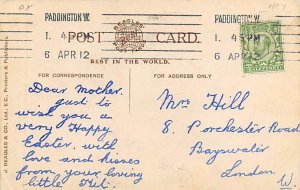 PADDINGTON.W.
1. 45 PM
6 APR 12
PADDINGTON.W.
1. 45 PM
6 APR 12
POST CARD.
BEST IN THE WORLD.
FOR CORRESPONDENCE
FOR ADDRESS ONLY
J. BEAGLES & CO., Ltd., E.C., Printers & Publishers.
Dear Mother.
Just to
wish you a
very Happy
Easter, with
love and kisses
from your loving
little
Mrs Hill
8 Porchester Road
Bayswater
London
W.